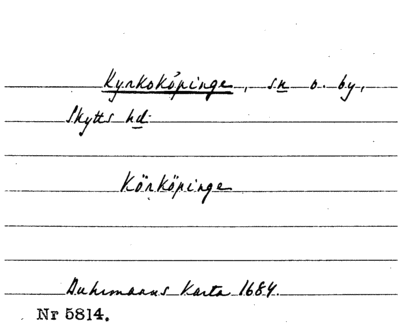 Kyrkoköpinge, sn o. by,
Skytts hd.
Körköpinge
Buhrmanns Karta 1684.
Nr 5814.